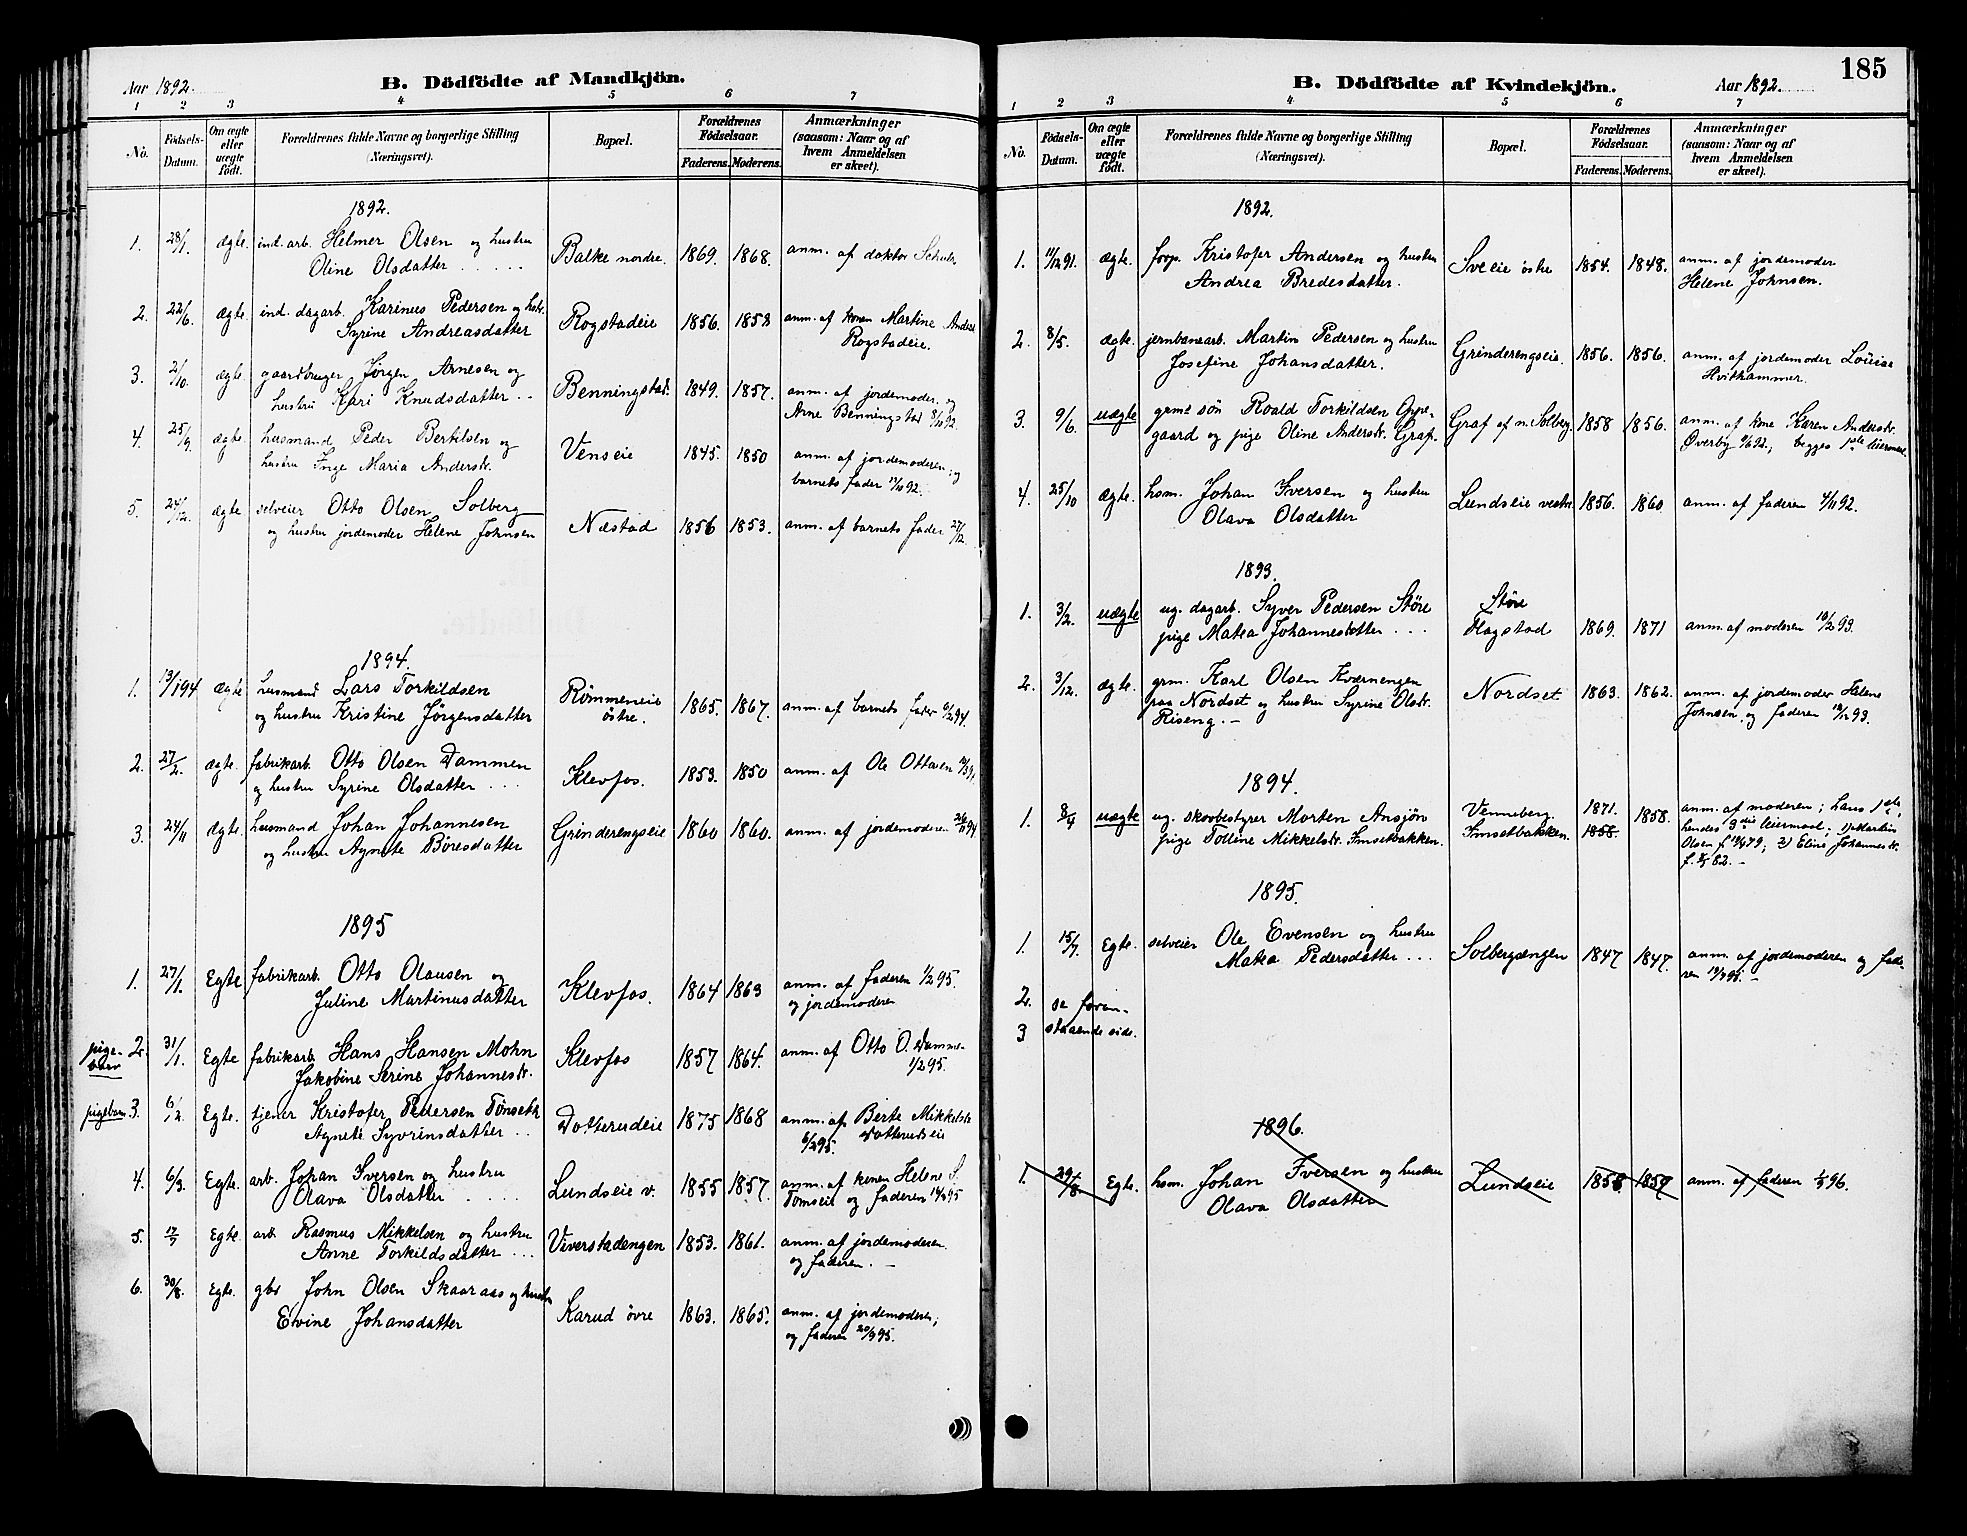 Aar 1892.
B. Dödfödte af Mandkjön.
1 2 3 4 5 6 7
No.
Födsels-Datum.
Om ægte eller uægte födt.
Forældrenes fulde Navne og borgerlige Stilling
(Næringsvei).
Bopæl.
Forældrenes Födselsaar.
Faderens. Moderens.
Anmærkninger
(saasom: Naar og af
hvem Anmeldelsen
er skeet).
1892.
1. 28/1. ægte. ind. arb. Helmer Olsen og hustru
Oline Olsdatter Balke nordre. 1869. 1868. anm. af doktor
2. 22/6. ægte. ind. dagarb. Karinus Pedersen og hstr.
Syrine Andreasdatter Rogstadeie 1856. 1858 anm. af konen Martine
Rogstadeie.
3. 2/10. ægte. gaardbruger Jørgen Arnesen og
hustru Kari Knudsdatter Benningstad. 1849. 1857. anm. af jordemoder. og
Arne Benningstad 8/10 92.
4. 25/9. ægte. husmand Peder Bertilsen og
hustru Inge Maria Andersdr. Venseie 1845. 1850 anm. af jordemoderen; og
barnets fader 92.
5. 24/12. ægte selveier Otto Olsen Solberg
og hustru jordemoder Helene Johnsen Næstad 1856 1853. anm. af barnets fader 27/12.
1894.
1. 13/1 94 ægte husmand Lars Torkildsen
og hustru Kristine Jørgensdatter Rømmeneie
østre. 1865. 1867. anm. af barnets fader 6/2 94.
2. 27/2. ægte. fabrikarb. Otto Olsen Dammen
og hustru Syrine Olsdatter Klevfos. 1853. 1850 anm. af Ole Ottosen
3. 24/11 ægte husmand Johan Johannesen
og hustru Agnete Boresdatter Grinderengseie 1860 1860. anm. af jordemoderen 26/11 94
1895
1. 27/1. Egte fabrikarb. Otto Olausen og
Juline Martinusdatter Klevfos. 1864 1863 anm. af faderen 1/2 95.
og jordemoderen
pige-
barn 2. 31/1. Egte fabrikarb. Hans Hansen Mohn
Jakobine Serine Johannesdr. Klevfos 1857 1864. anm. af Otto O. Damme-
1/2 95.
pigebarn 3. 6/2. Egte. tjener Kristofer Pedersen Tønseth
Agnete Syvrinsdatter Dotterudeie 1875 1868 anm. af Berte Mikkelsdr
6/2 95. Dotterudseie
4. 6/3. Egte. arb. Johan Iversen og hustru
Olava Olsdatter Lundseie v. 1855 1857. anm. af konen Helene S.
Tomseie og faderen 95
5. 17/7 Egte. arb. Rasmus Mikkelsen og hustru
Anne Torkildsdatter Viverstadengen 1853. 1861. anm. af jordemoderen
og faderen. –
6. 30/8. Egte. gbr John Olsen Skaaraas og hustru
Evine Johansdatter Karud øvre 1863. 1865. anm. af jordemoderen;
og faderen 20/9 95.
185
B. Dödfödte af Kvindekjön.
Aar 1892.
1 2 3 4 5 6 7
No.
Födsels-Datum.
Om ægte eller uægte födt.
Forældrenes fulde Navne og borgerlige Stilling
(Næringsvei).
Bopæl.
Forældrenes Födselsaar.
Faderens. Moderens.
Anmærkninger
(saasom: Naar og af
hvem Anmeldelsen
er skeet).
1892.
1. 11/12 91. ægte. forp. Kristofer Andersen og hustru
Andrea Bredesdatter. Sveie østre 1854. 1848. anm. af jordemoder
Helene Johnsen.
2. 8/5. ægte. jernbanearb. Martin Pedersen og hustru
Josefine Johansdatter. Grinderengseie. 1856. 1856. anm. af jordemoder Louise
Hvithammer.
3. 9/6. uægte grmd søn Roald Torkildsen Oppe-
gaard og pige Oline Andersdr. Graf. Graf af n. Solberg. 1858 1856. anm. af kone Karen Andersdr.
Øverby 9/6 92.; begges 1ste leiermaal.
4. 25/10 ægte. hsm. Johan Iversen og hustru
Olava Olsdatter Lundseie vestre 1856. 1860 anm. af faderen 4/11 92.
1893.
1. 3/2. uægte ug. dagarb. Syver Pedersen Støre
pige Matea Johannesdatter Støre
Flagstad 1869. 1871 anm. af moderen 10/2 93.
2. 3/12. ægte. grm. Karl Olsen Kværnengen
paa Nordset og hustru Syrine Olsdr.
Riseng. – Nordset 1863. 1862. anm. af jordemoder Helene
Johnsen, og faderen 93.
1894.
1. uægte ug. skovbestyrer Morten Ansjøn
pige Tolline Mikkelsdr. Imsetbakken. Venneberg.
Imsetbakken. 1871.
1858. 1858. anm. af moderen; hans 1ste,
hendes 3die leiermaal; 1) Martin
Olsen f. 79; 2) Eline Johannesdr.
f. 82. –
1895.
1. 15/7. Egte. selveier Ole Evensen og hustru
Matea Pedersdatter Solbergængen 1847 1847. anm. af jordemoderen og fade-
ren 95. –
2. se foran-
3 staaende side.
1896.
1. 29/8. Egte. hsm. Johan Iversen og hustru
Olava Olsdatter Lundseie 1858 1857 anm. af faderen 96.